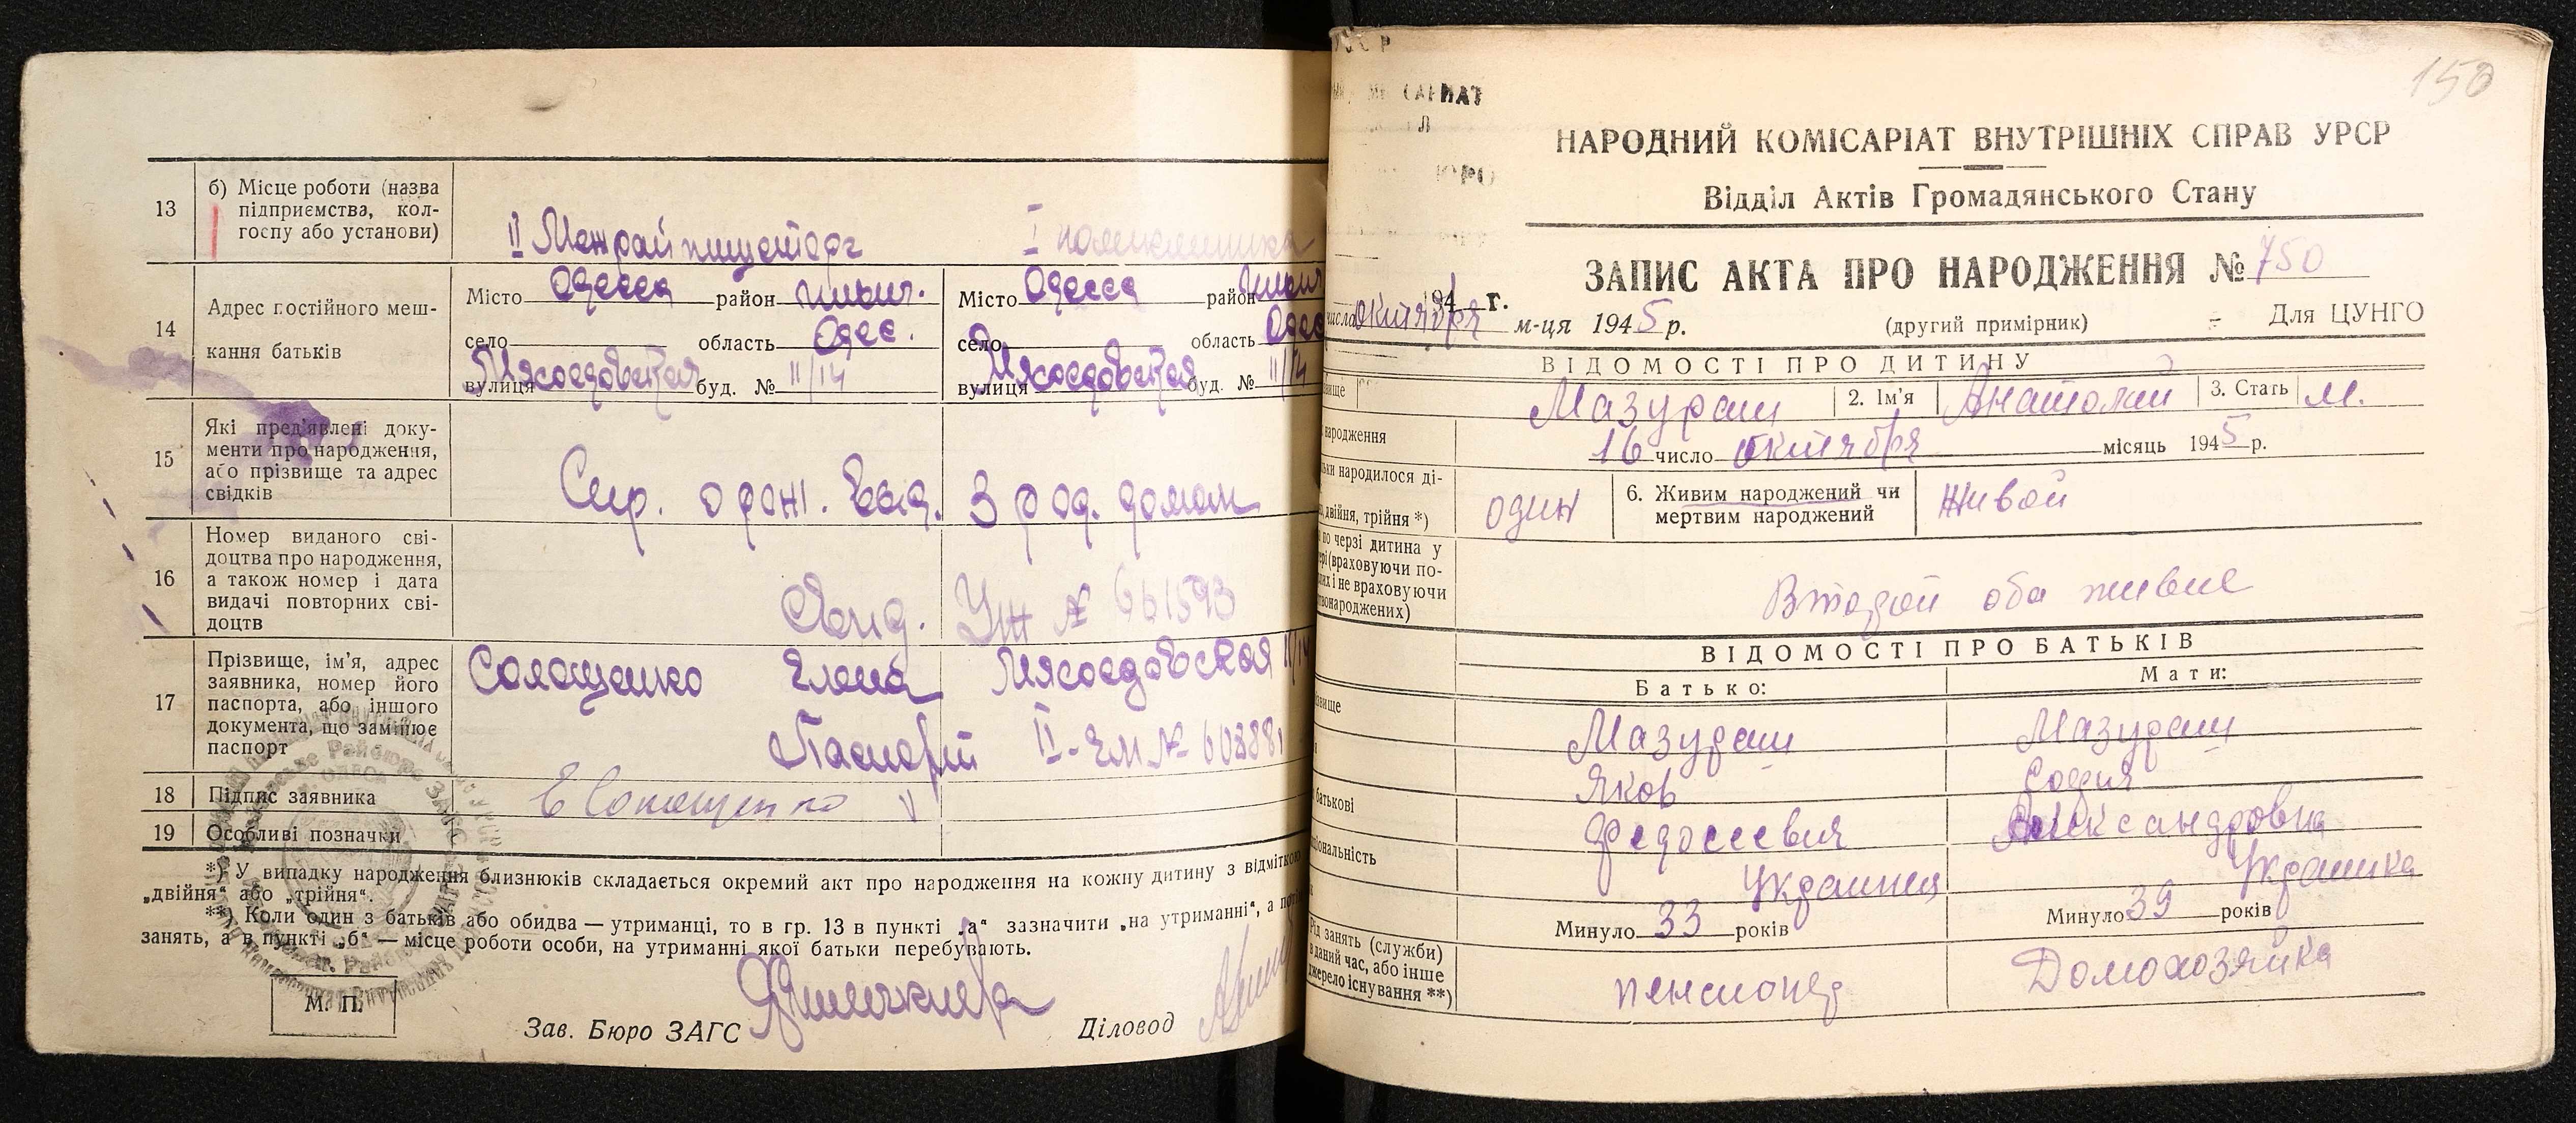 13
б) Місце роботи (назва
підприємства, кол-
госпу або установи)
II Межрайпищеторг
I поликлиника
14
Адрес постійного меш-
кання батьків
Місто Одесса район
село область Одес.
вулиця Мясоедовская буд. № 11/14
Місто Одесса район
село область Одес
вулиця Мясоедовская буд. № 11/14
15
Які пред'явлені доку-
менти про народження,
або прізвище та адрес
свідків
Спр. о рожд. выд. 3 род. домом
16
Номер виданого сві-
доцтва про народження,
а також номер і дата
видачі повторних сві-
доцтв
№
17
Прізвище, ім'я, адрес
заявника, номер його
паспорта, або іншого
документа, що замінює
паспорт
Солощенко Елена Мясоедовская
Паспорт II-ЕМ №
18
Підпис заявника
19
Особливі позначки
*) У випадку народження близнюків складається окремий акт про народження на кожну дитину з відміткою
„двійня“ або „трійня“.
**) Коли один з батьків або обидва — утриманці, то в гр. 13 в пункті „а“ зазначити „на утриманні“, а
занять, а в пункті „б“ — місце роботи особи, на утриманні якої батьки перебувають.
М. П.
Зав. Бюро ЗАГС
Діловод
150
НАРОДНИЙ КОМІСАРІАТ ВНУТРІШНІХ СПРАВ УРСР
Відділ Актів Громадянського Стану
ЗАПИС АКТА ПРО НАРОДЖЕННЯ № 750
194 г.
числа октября м-ця 1945 р.
(другий примірник)
Для ЦУНГО
ВІДОМОСТІ ПРО ДИТИНУ
Мазураш 2. Ім'я Анатолий 3. Стать м.
народження
16 число октября місяць 1945 р.
народилося ді-
двійня, трійня *)
один
6. Живим народжений чи
мертвим народжений
Живой
по черзі дитина у
(враховуючи по-
і не враховуючи
Второй оба живые
ВІДОМОСТІ ПРО БАТЬКІВ
Батько:
Мати:
Мазураш
Мазураш
Яков
София
батькові
Федосеевич
Александровна
Украинец
Украинка
Минуло 33 років
Минуло 39 років
Рід занять (служби)
в даний час, або інше
джерело існування **)
пенсионер
Домохозяйка